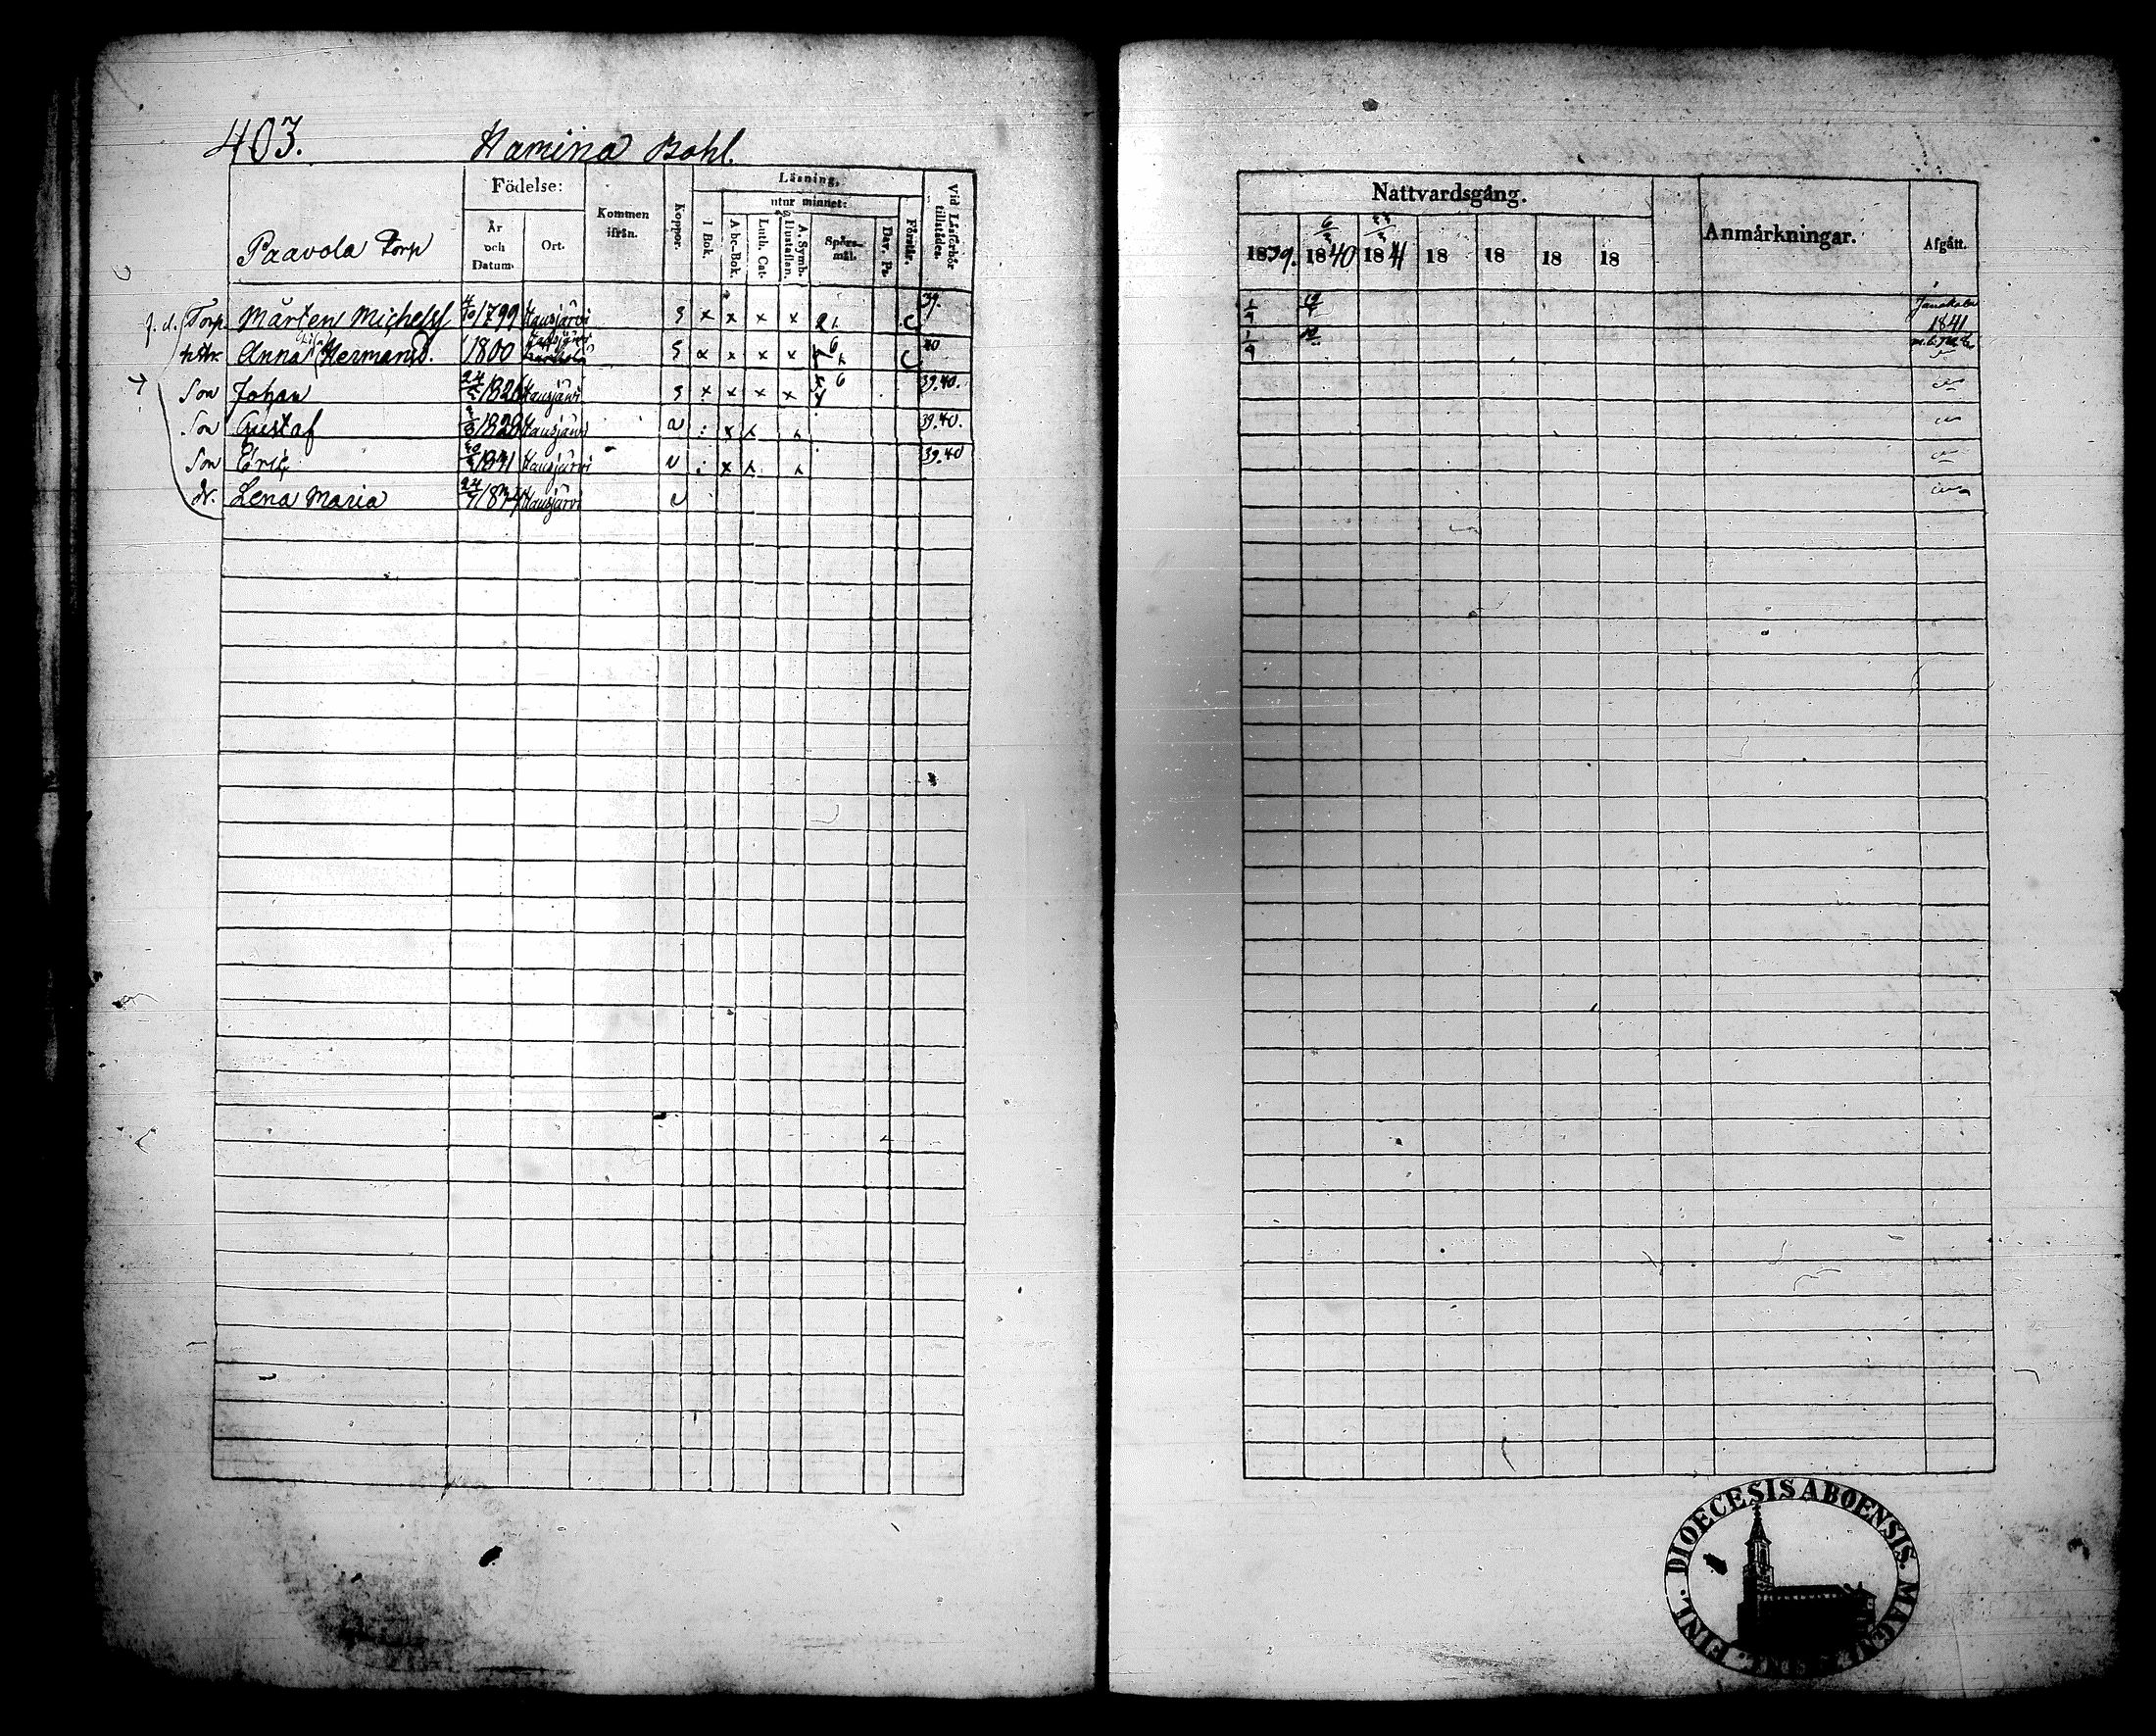 403. Hamina Bohl.
Paavola Torp
Födelse:
År och Datum.
Ort.
Kommen ifrån.
Koppor.
Läsning,
I Bok.
utur minnet:
Abc-Bok.
Luth. Cat.
Hustaflan.
A. Symb.
Spörsmål.
Dav. Ps.
Förstår.
Vid Läsförhör tillstädes.
f. d. Torp. Mårten Michelss 4/10 1799 Hausjärvi s x x x x c 39.
hstr. Anna Lisa Hermansd. 1800 Hausjärvi s x x x x 6 c 40
Son Johan 24/5 1826 Hausjärvi s x x x x 6 39.40.
Son Gustaf 1828 Hausjärvi v x 39.40.
Son Eric 1831 Hausjärvi v x 39.40
dr. Lena Maria 24/7 1834 Hausjärvi v
Nattvardsgång.
1839. 6/3 1840 1841 18 18 18 18
Anmärkningar.
Afgått.
1/9 Janakala
1841
1/9
FINL. DIOECESIS ABOENSIS. MAGNI